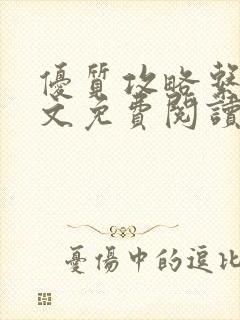 優質攻略繫
文免費閱讀
憂傷中的逗比